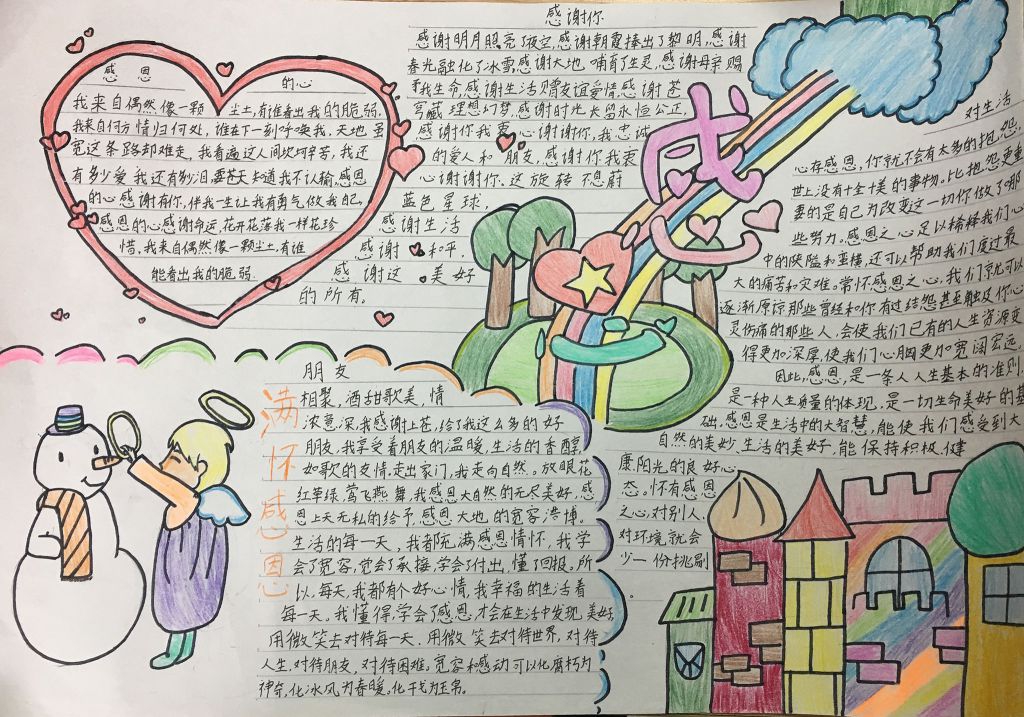 感恩 的心
我来自偶然像一颗 尘土,有谁看出我的脆弱.
我来自何方情归何处,谁在下一刻呼唤我,天地虽
宽这条路却难走,我看遍这人间坎坷辛苦,我还
有多少爱我还有多少泪.要苍天知道我不认输.感恩
的心感谢有你,伴我一生让我有勇气做我自己.
感恩的心感谢命运,花开花落我一样花珍
惜,我来自偶然像一颗尘土,有谁
能看出我的脆弱.
感谢你
感谢明月照亮了夜空,感谢朝霞捧出了黎明,感谢
春光融化了冰雪,感谢大地 哺育了生灵,感谢母亲赐
予我生命,感谢生活赠友谊爱情,感谢苍
穹藏 理想幻梦,感谢时光长留永恒公正,
感谢你我衷心谢谢你,我忠诚
的爱人和 朋友,感谢你我衷
心谢谢你、这旋转不息蔚
蓝色星球,
感谢生活
感谢 和平,
感谢这 美好
的所有。
感
恩
对生活
心存感恩,你就不会有太多的抱怨,
世上没有十全十美的事物。比抱怨更重
要的是自己为改变这一切你做了哪
些努力。感恩之心足以稀释我们心
中的狭隘和蛮横,还可以帮助我们度过最
大的痛苦和灾难。常怀感恩之心,我们就可以
逐渐原谅那些曾经和你有过结怨甚至触及你心
灵伤痛的那些人,会使我们已有的人生资源变
得更加深厚,使我们心胸更加宽阔宏远。
因此,感恩,是一条人人生基本的准则,
是一种人生质量的体现,是一切生命美好的基
础,感恩是生活中的大智慧,能使我们感受到大
自然的美妙、生活的美好,能保持积极、健
康、阳光的良好心
态。怀有感恩
之心,对别人、
对环境就会
少一份挑剔
。
满怀感恩心
朋友
相聚,酒甜歌美,情
浓意深,我感谢上苍,给了我这么多的好
朋友,我享受着朋友的温暖,生活的香醇,
如歌的友情,走出家门,我走向自然。放眼花
红草绿,莺飞燕舞,我感恩大自然的无尽美好,感
恩上天无私的给予,感恩大地的宽容浩博。
生活的每一天,我都充满感恩情怀,我学
会了宽容,学会了承接,学会了付出,懂了回报。所
以,每天,我都有个好心情,我幸福的生活着
每一天。我懂得,学会了感恩,才会在生活中发现美好,
用微笑去对待每一天,用微笑去对待世界,对待
人生,对待朋友,对待困难。宽容和感动可以化腐朽为
神奇,化冰风为春暖。化干戈为玉帛。